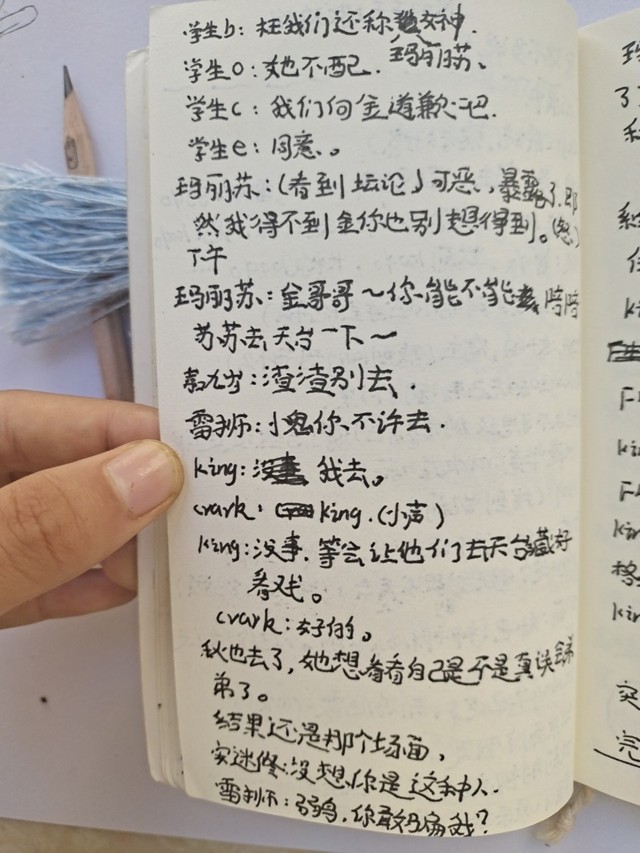 学生b：枉我们还称她女神.
玛丽苏、
学生o：她不配.
学生c：我们向金道歉吧.
学生e：同意。
玛丽苏：(看到坛论)可恶，暴露了.即
然我得不到金你也别想得到。(怒)
下午
玛丽苏：金哥哥～你能不能 陪陪
苏苏去天台一下～
嘉九岁：渣渣别去.
雷狮：小鬼你不许去.
king：没事 我去。
crark： king.(小声)
king：没事.等会让他们去天台藏好
看戏。
crark：好的。
秋也去了，她想看看自己是不是真误会弟
弟了。
结果还是那个场面，
安迷修：没想你是这种人.
雷狮：弱鸡，你敢 骗我？
玛
了
king
king
king